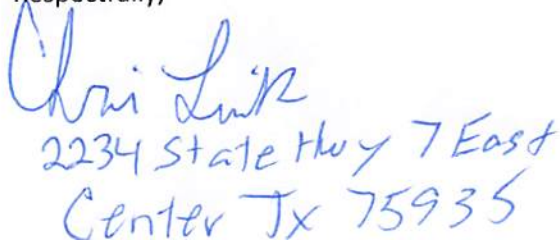 Respectfully,
Chris
2234 State Hwy 7 East
Center Tx 75935